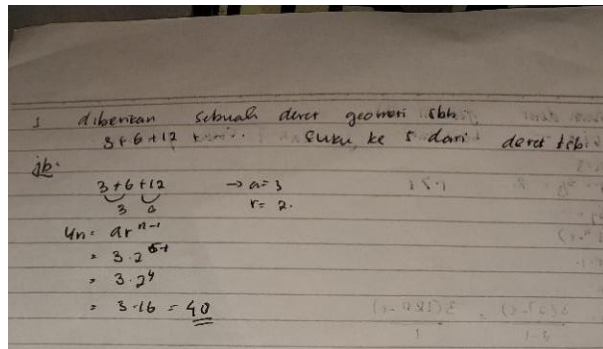 1 diberikan sebuah deret geometri sbb
3+6+12 + .... suku ke 5 dari deret tsb
jb:
3+6+12 → a=3
3 6 r= 2.
Un= ar^n-1
= 3.2^5-1
= 3.2^4
= 3.16 = 40